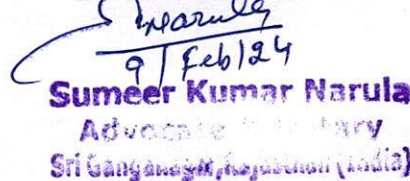 Narula
9/Feb/24
Sumeer Kumar Narula
Advocate & Notary
Sri Ganganagar, Rajasthan (India)